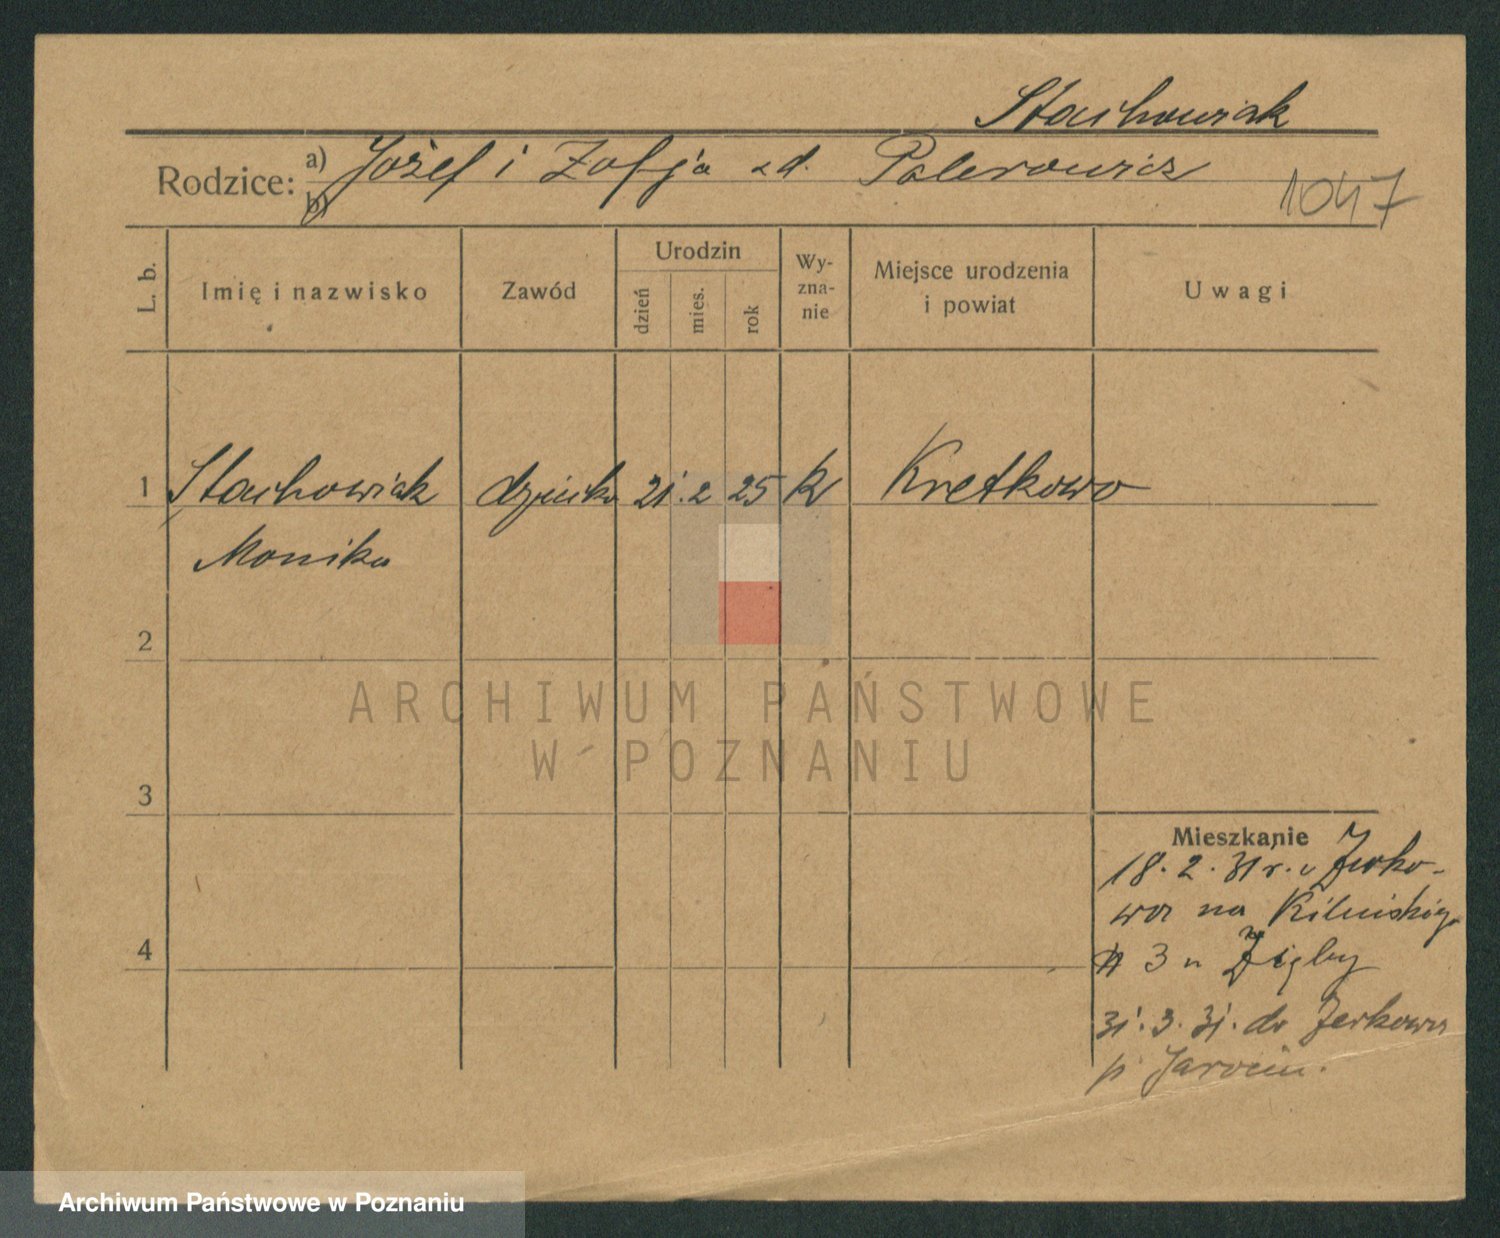 Stachowiak
Rodzice: a) Józef i Zofja zd.
b)
1047
L. b.
Imię i nazwisko
Zawód
Urodzin
dzień
mies.
rok
Wy-
zna-
nie
Miejsce urodzenia
i powiat
Uwagi
1 Stachowiak dziecko 21. 2 25 k Kretkowo
Monika
2
3
4
Mieszkanie
18. 2. 31 r. z Żerko-
wa na Kilińskiego
3 u
31. 3. 31. do Żerkowa
p. Jarocin.
ARCHIWUM PAŃSTWOWE
W POZNANIU
Archiwum Państwowe w Poznaniu